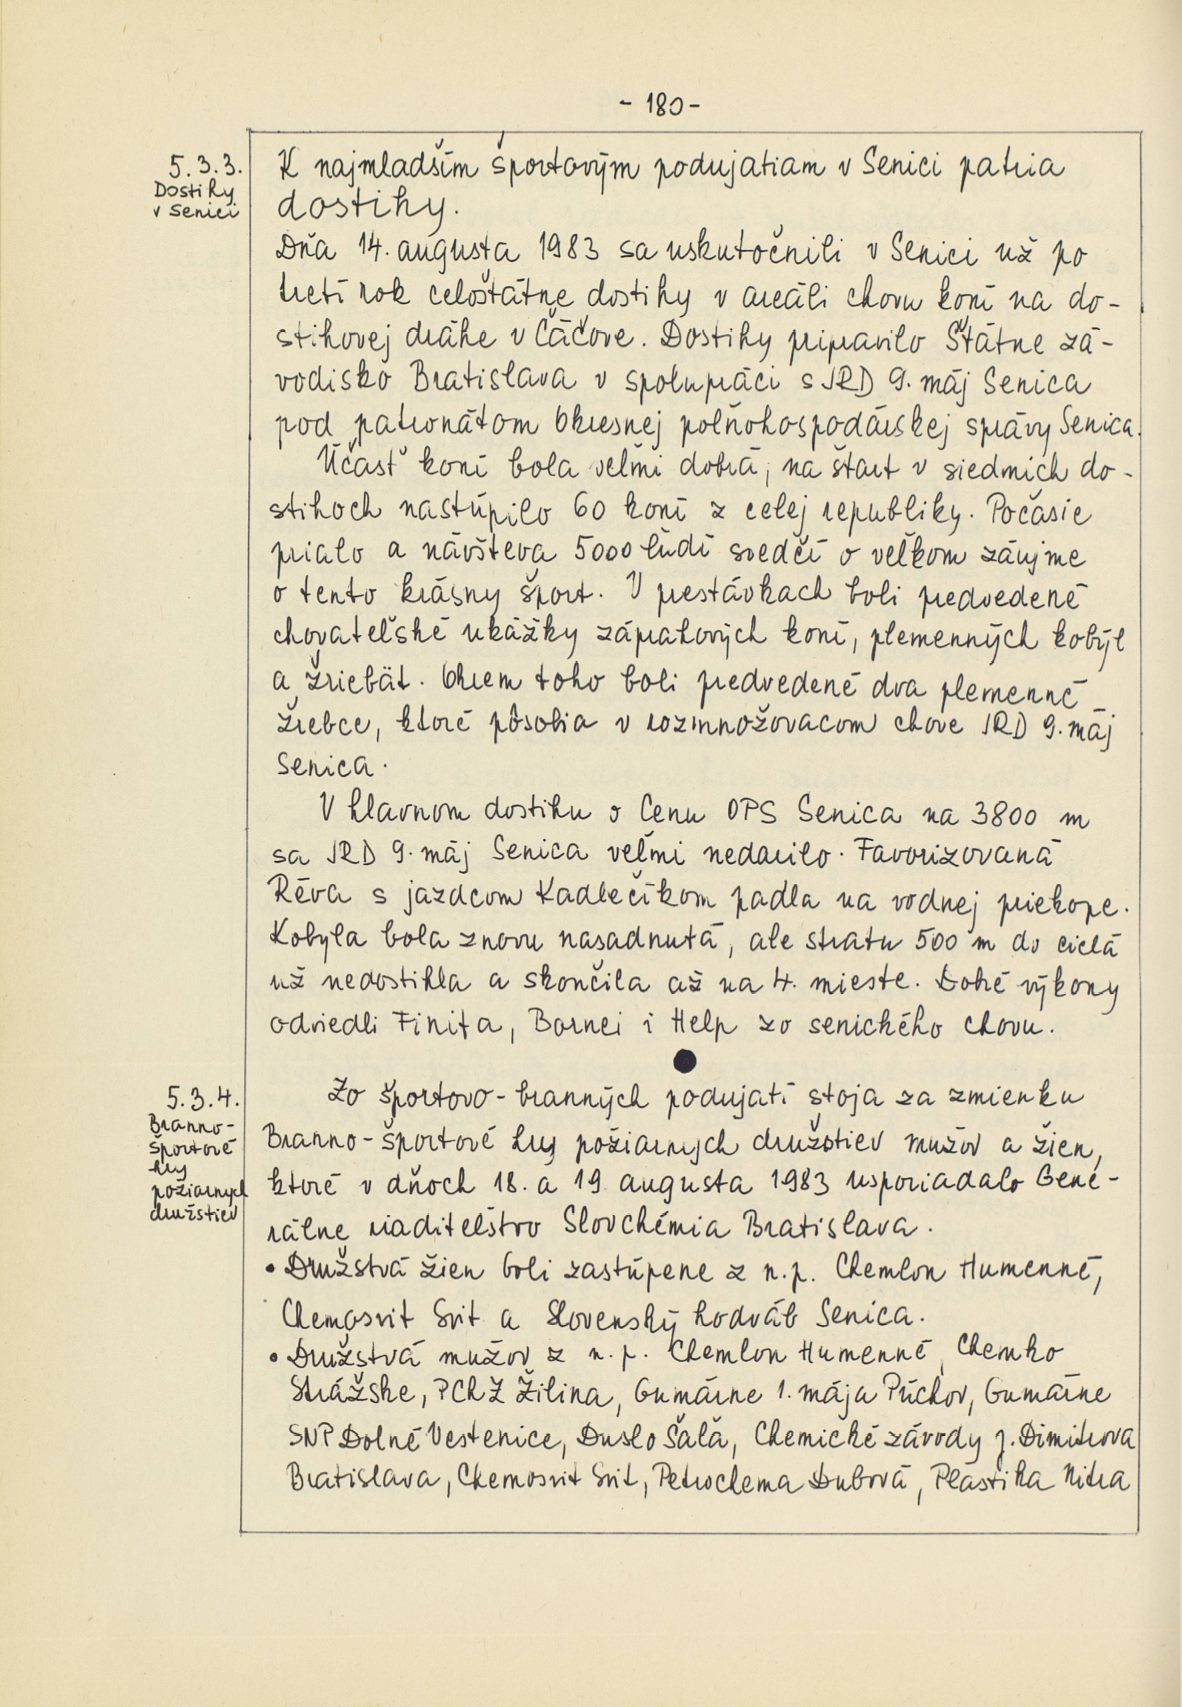 - 180 -
5.3.3.
Dostihy
v Senici
K najmladším športovým podujatiam v Senici patria
dostihy.
Dňa 14. augusta 1983 sa uskutočnili v Senici už po
tretí rok celoštátne dostihy v areáli chovu koní na do-
stihovej dráhe v Čáčove. Dostihy pripravilo Štátne zá-
vodisko Bratislava v spolupráci s JRD 9. máj Senica
pod patronátom Okresnej poľňohospodárskej správy Senica.
Účasť koní bola veľmi dobrá, na štart v siedmich do-
stihoch nastúpilo 60 koní z celej republiky. Počasie
prialo a návšteva 5000 ľudí svedčí o veľkom záujme
o tento krásny šport. V prestávkach boli predvedené
chovateľské ukážky záprahových koní, plemenných kobýl
a žriebät. Okrem toho boli predvedené dva plemenné
žrebce, ktoré pôsobia v rozmnožovacom chove JRD 9. máj
Senica.
V hlavnom dostihu o Cenu OPS Senica na 3800 m
sa JRD 9. máj Senica veľmi nedarilo. Favorizovaná
Réva s jazdcom Kadlečíkom padla na vodnej priekope.
Kobyla bola znovu nasadnutá, ale stratu 500 m do cieľa
už nedostihla a skončila až na 4. mieste. Dobré výkony
odviedli Finita, Barnei i Help zo senického chovu.
5.3.4.
Branno-
športové
hry
požiarnych
družstiev
Zo športovo-branných podujatí stoja za zmienku
Branno-športové hry požiarnych družstiev mužov a žien,
ktoré v dňoch 18. a 19. augusta 1983 usporiadalo Gene-
rálne riaditeľstvo Slovchémia Bratislava.
• Družstvá žien boli zastúpene z n.p. Chemlon Humenné,
Chemosvit Svit a Slovenský hodváb Senica.
• Družstvá mužov z n.p. Chemlon Humenné, Chemko
Strážske, PCHZ Žilina, Gumárne 1. mája Púchov, Gumárne
SNP Dolné Vestenice, Duslo Šaľa, Chemické závody J. Dimitrova
Bratislava, Chemosvit Svit, Petrochema Dubová, Plastika Nitra